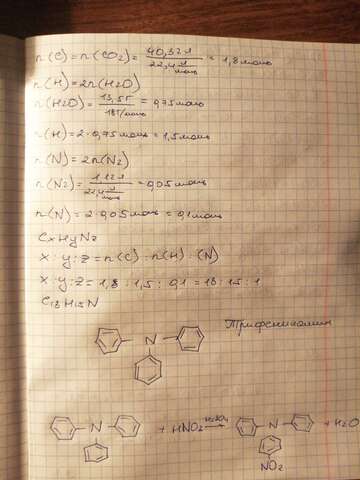 n(C) = n(CO2) = 40,32л / 22,4 л/моль = 1,8 моль
n(H) = 2n(H2O)
n(H2O) = 13,5г / 18г/моль = 0,75 моль
n(H) = 2·0,75 моль = 1,5 моль
n(N) = 2n(N2)
n(N2) = 1,12л / 22,4 л/моль = 0,05 моль
n(N) = 2·0,05 моль = 0,1 моль
CxHyNz
x : y : z = n(C) : n(H) : (N)
x : y : z = 1,8 : 1,5 : 0,1 = 18 : 15 : 1
C18H15N
Трифениламин
N
N + HNO2 H2SO4 N + H2O
NO2